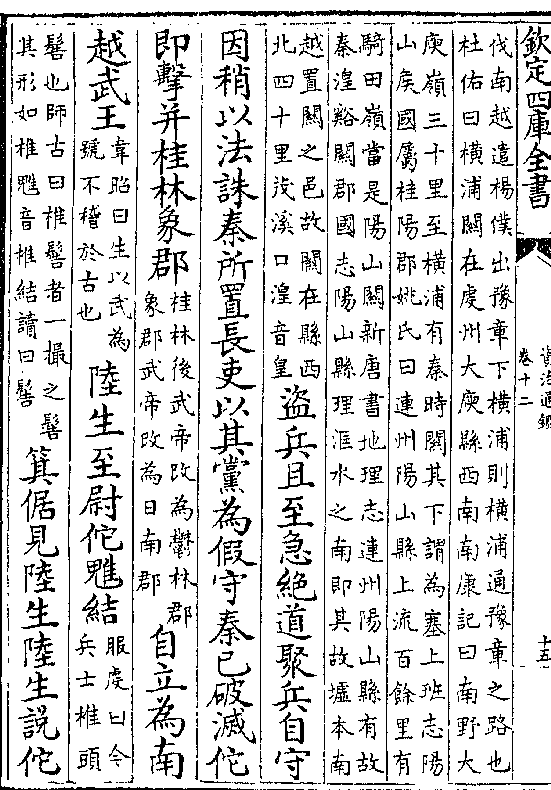 欽定四庫全書
資治通鑑
卷十二
十五
伐南越遣楊僕出豫章下橫浦則橫浦通豫章之路也
杜佑曰橫浦關在虔州大庾縣西南南康記曰南野大
庾嶺三十里至橫浦有秦時關其下謂為塞上班志陽
山侯國屬桂陽郡姚氏曰連州陽山縣上流百餘里有
騎田嶺當是陽山關新唐書地理志連州陽山縣有故
秦湟谿關郡國志陽山縣理滙水之南即其故墟本南
越置關之邑故關在縣西
北四十里茂溪口湟音皇
盜兵且至急絶道聚兵自守
因稍以法誅秦所置長吏以其黨為假守秦已破滅佗
即擊并桂林象郡
桂林後武帝改為鬱林郡
象郡武帝改為日南郡
自立為南
越武王
韋昭曰生以武為
號不稽於古也
陸生至尉佗魋結
服虔曰今
兵士椎頭
髻也師古曰椎髻者一撮之髻
其形如椎魋音椎結讀曰髻
箕倨見陸生陸生説佗